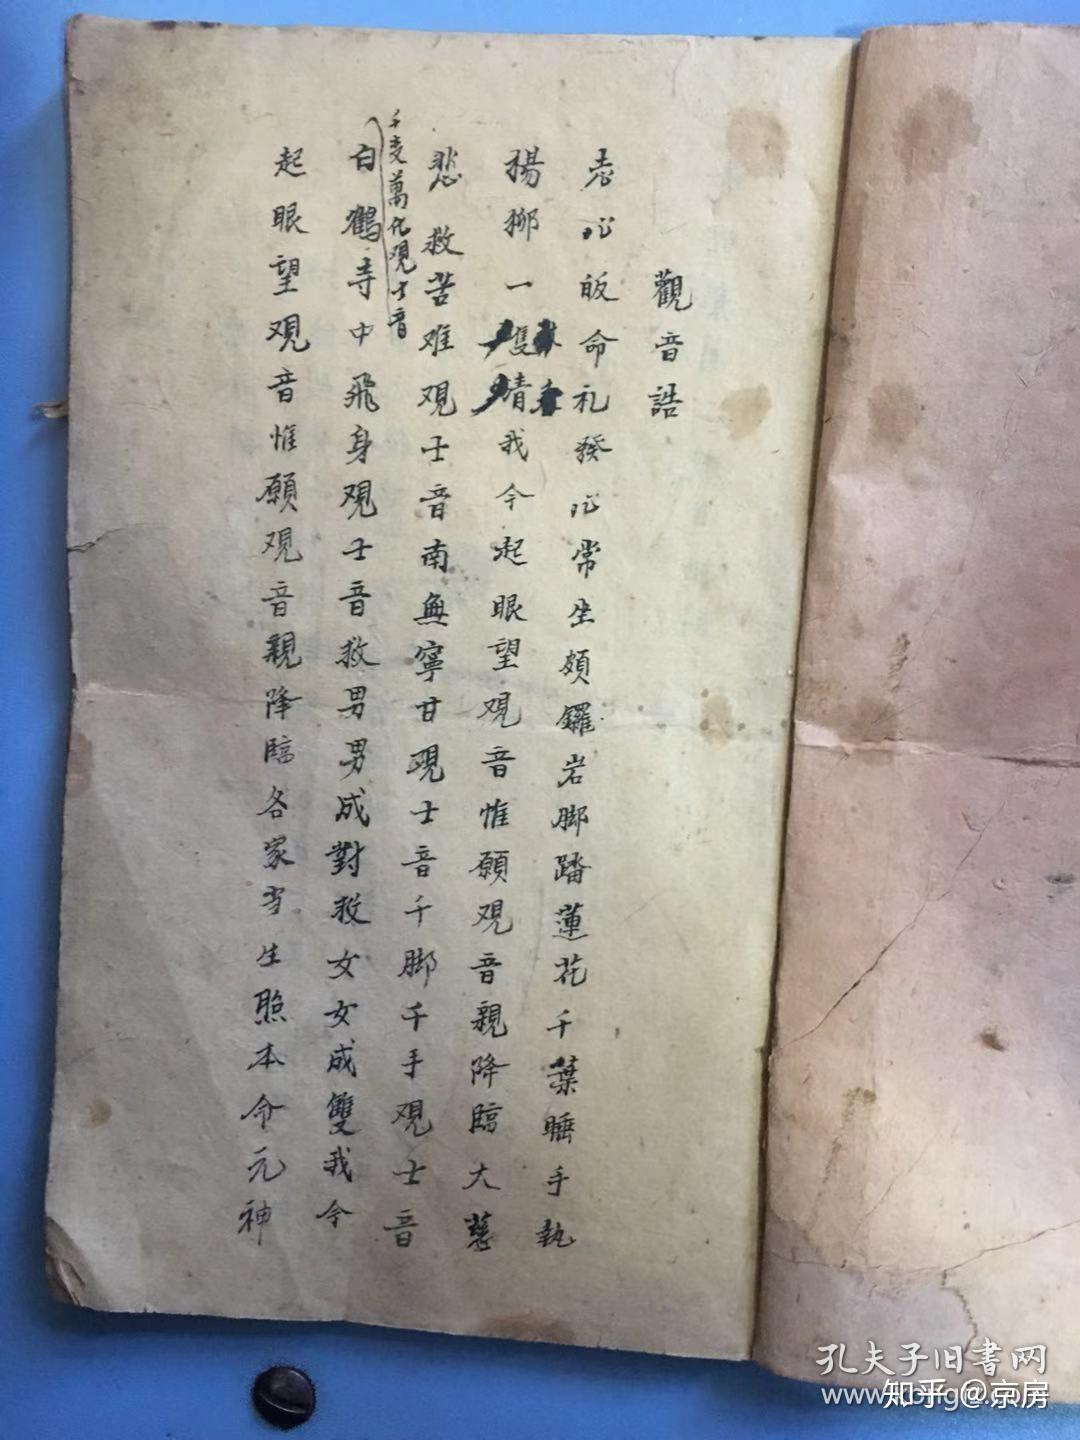 觀音誥
志心皈命礼發心常坐頗鑼岩脚踏蓮花千葉睡手執
楊柳一隻請我今起眼望观音惟願观音親降臨大慈
悲救苦难观士音南無寧甘观士音千脚千手观士音
千变萬化观士音
白鶴寺中飛身观士音救男男成對救女女成雙我今
起眼望观音惟願观音親降臨各家当生照本命元神
孔夫子旧书网
www.kongfz.com
知乎 @京房